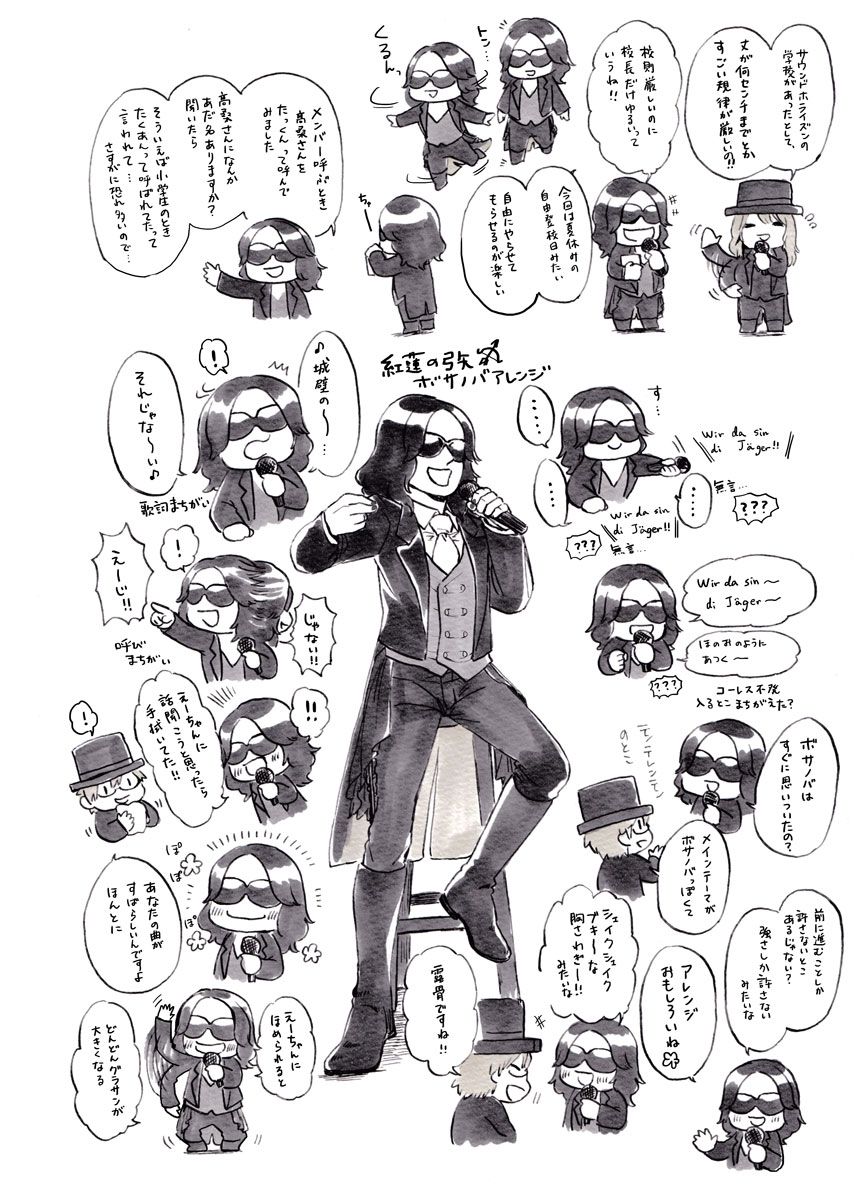 サウンドホライズンの
学校があったとして、
丈が何センチまでとか
すごい規律が厳しいの!!
校則厳しいのに
校長だけゆるいって
いうね!!
トン…
くるんっ
今回は夏休みの
自由登校日みたい
自由にやらせて
もらせるのが楽しい
ちゃー
メンバー呼ぶとき
高桑さんを
たっくんって呼んで
みました
高桑さんになんか
あだ名ありますか?
聞いたら
そういえば小学生のとき
たくあんって呼ばれてたって
言われて…
さすがに恐れ多いので…
紅蓮の弓矢
ボサノバアレンジ
♪城壁の〜…
!
それじゃな〜い♪
歌詞まちがい
じゃない!!
!
えーじ!!
呼び
まちがい
!!
えーちゃんに
話聞こうと思ったら
手拭いてた!!
!
ぽ
ぽ
ぽ
あなたの曲が
すばらしいんですよ
ほんとに
えーちゃんに
ほめられると
どんどんグラサンが
大きくなる
す…
Wir da sin
di Jäger!!
無言…
???
……
Wir da sin
di Jäger!!
無言…
???
…
…
Wir da sin〜
di Jäger〜
ほのおのように
あつく〜
???
コーレス不発
入るとこまちがえた?
ボサノバは
すぐに思いついたの?
テンテレンテン
のとこ
メインテーマが
ボサノバっぽくて
前に進むことしか
許さないとこ
あるじゃない?
強さしか許さない
みたいな
アレンジ
おもしろいね
シェイクシェイク
ブギーな
胸さわぎー!!
みたいな
露骨ですね!!